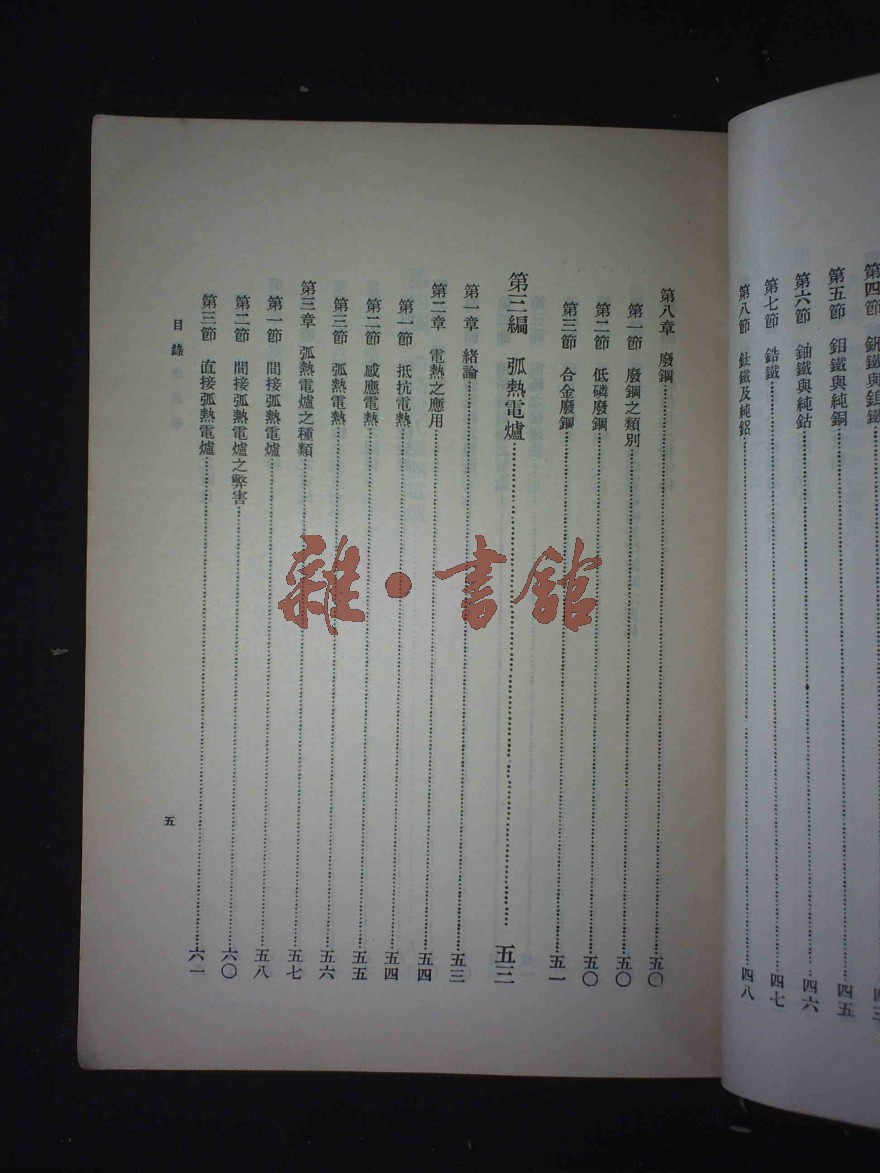 第四節　釩鐵與鎢鐵……四三
第五節　鉬鐵與純銅……四五
第六節　鈾鐵與純鈷……四六
第七節　鋯鐵……四七
第八節　鈦鐵及純鋁……四八
第八章　廢鋼……五〇
第一節　廢鋼之類別……五〇
第二節　低磷廢鋼……五〇
第三節　合金廢鋼……五一
第三編　弧熱電爐……五三
第一章　緒論……五三
第二章　電熱之應用……五四
第一節　抵抗電熱……五四
第二節　感應電熱……五五
第三節　弧熱電熱……五六
第三章　弧熱電爐之種類……五七
第一節　間接弧熱電爐……五八
第二節　間接弧熱電爐之弊害……六〇
第三節　直接弧熱電爐……六一
目錄
五
雜·書館